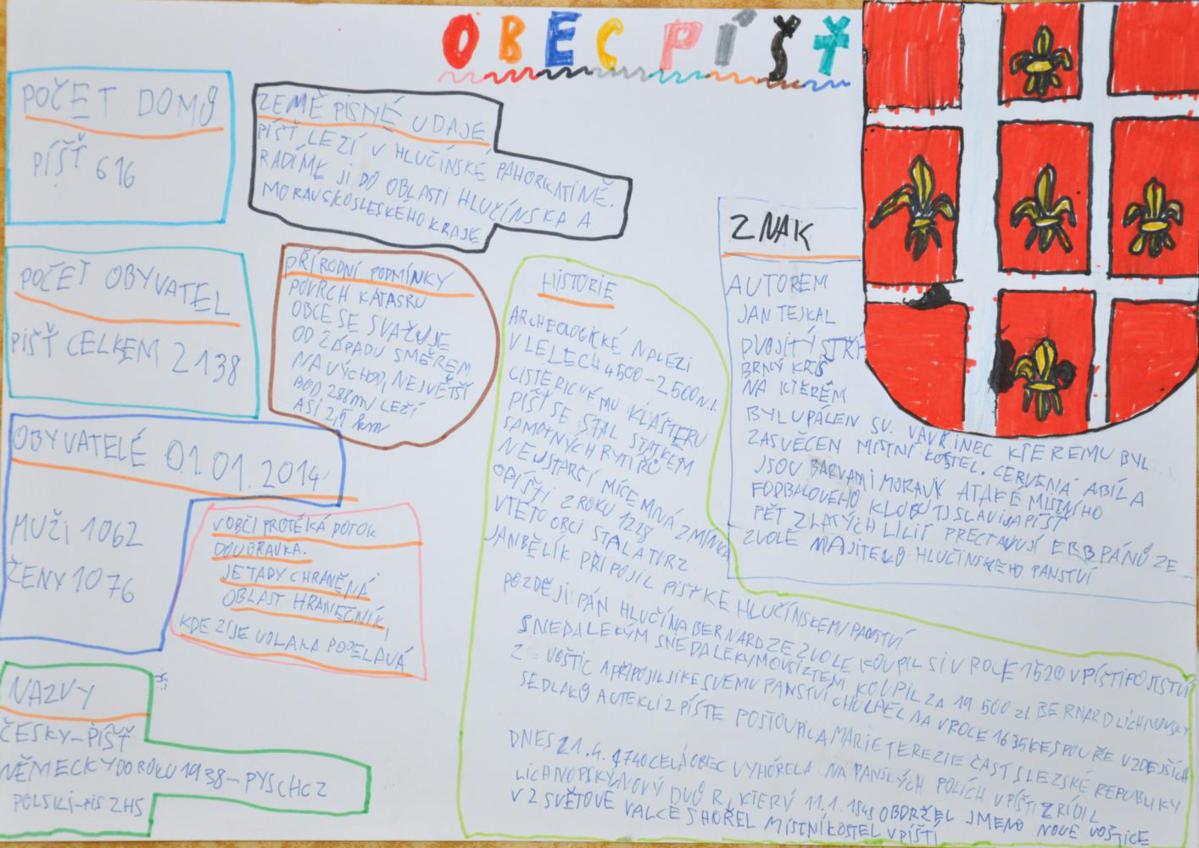 OBEC PÍŠŤ
POČET DOMŮ
PÍŠŤ 616
ZEMĚ PISNÉ UDAJE
PÍŠŤ LEZÍ V HLUČÍNSKÉ PAHORKATÍNĚ.
RADÍME JI DO OBLASTI HLUČÍNSKA A
MORAVSKOSLESKÉHO KRAJE
POČET OBYVATEL
PÍŠŤ CELKEM 2138
PŘÍRODNÍ PODMÍNKY
POVRCH KATASRU
OBCE SE SVAŽUJE
OD ZÁPADU SMĚREM
NA VÝCHOD, NEJVĚTŠÍ
BOD 288m LEŽÍ
ASI 2,1 km
OBYVATELÉ 01.01.2014
MUŽI 1062
ŽENY 1076
V OBCI PROTÉKÁ POTOK
JE TADY CHRANĚNÁ
OBLAST HRANEČNÍK,
KDE ZIJE VOLAVKA POPELAVÁ
NAZVY
ČESKY-PÍŠŤ
NĚMECKY DO ROKU 1938-PYSCHCZ
POLSKI-
HISTORIE
ARCHEOLOGICKÉ NALEZI
V LELECH 4500-2500
KLÁŠTERU
PÍŠŤ SE STAL STATKEM
SAMOTNÝCH RYTÍŘŮ
NEJSTARŠÍ ZMÍNKA
O PÍŠTI Z ROKU 1228
V TÉTO OBCI
JAN BĚLÍK PŘIPOJIL HLUČÍNSKEMU PANSTVÍ
POZDĚJI PÁN HLUČÍNA BERNARD ZE ZVOLE KOUPIL SI V ROCE 1520 V PÍŠTI FOJSTVÍ
S NEDALEKÝM KOUPIL ZA 19 500 zl BERNARD LICHNOVSKY
Z VOŠTIC A PŘIPOJIL SVEMU PANSTVÍ V ROCE 1635
SEDLAKŮ A UTEKLI Z PÍŠTE POSTOUPILA MARIE TEREZIE ČAST SLEZSKÉ REPUBLIKY
DNES 21.4. 1740 CELÁ OBEC VYHÓRELA NA PANSKÝCH POLÍCH V PÍŠTI ZRÍDIL
NOVÝ DVŮR, KTERÝ 11.1. OBDRŽEL JMENO NOVE VOŠTICE
V 2 SVĚTOVE VALCE SHOŘEL MÍSTNÍ KOSTEL V PÍŠTI
ZNAK
AUTOREM
JAN TEJKAL
DVOJÍTÝ
BRNÝ KRIŠ
NA KTERÉM
BYL UPÁLEN SV. VAVŘINEC KTEREMU BYL
ZASVĚCEN MISTNÍ KOSTEL. ČERVENÁ A BÍLA
JSOU BARVAMI MORAVY A TAKÉ MISTNÍHO
FODBALOVEHO KLOBU TJ SLAVIJA PÍŠŤ
PĚT ZLATÝCH LILIÍ PRECTAVUJÍ ERB PÁNŮ ZE
ZVOLE MAJITELŮ HLUČINSKEHO PANSTVÍ